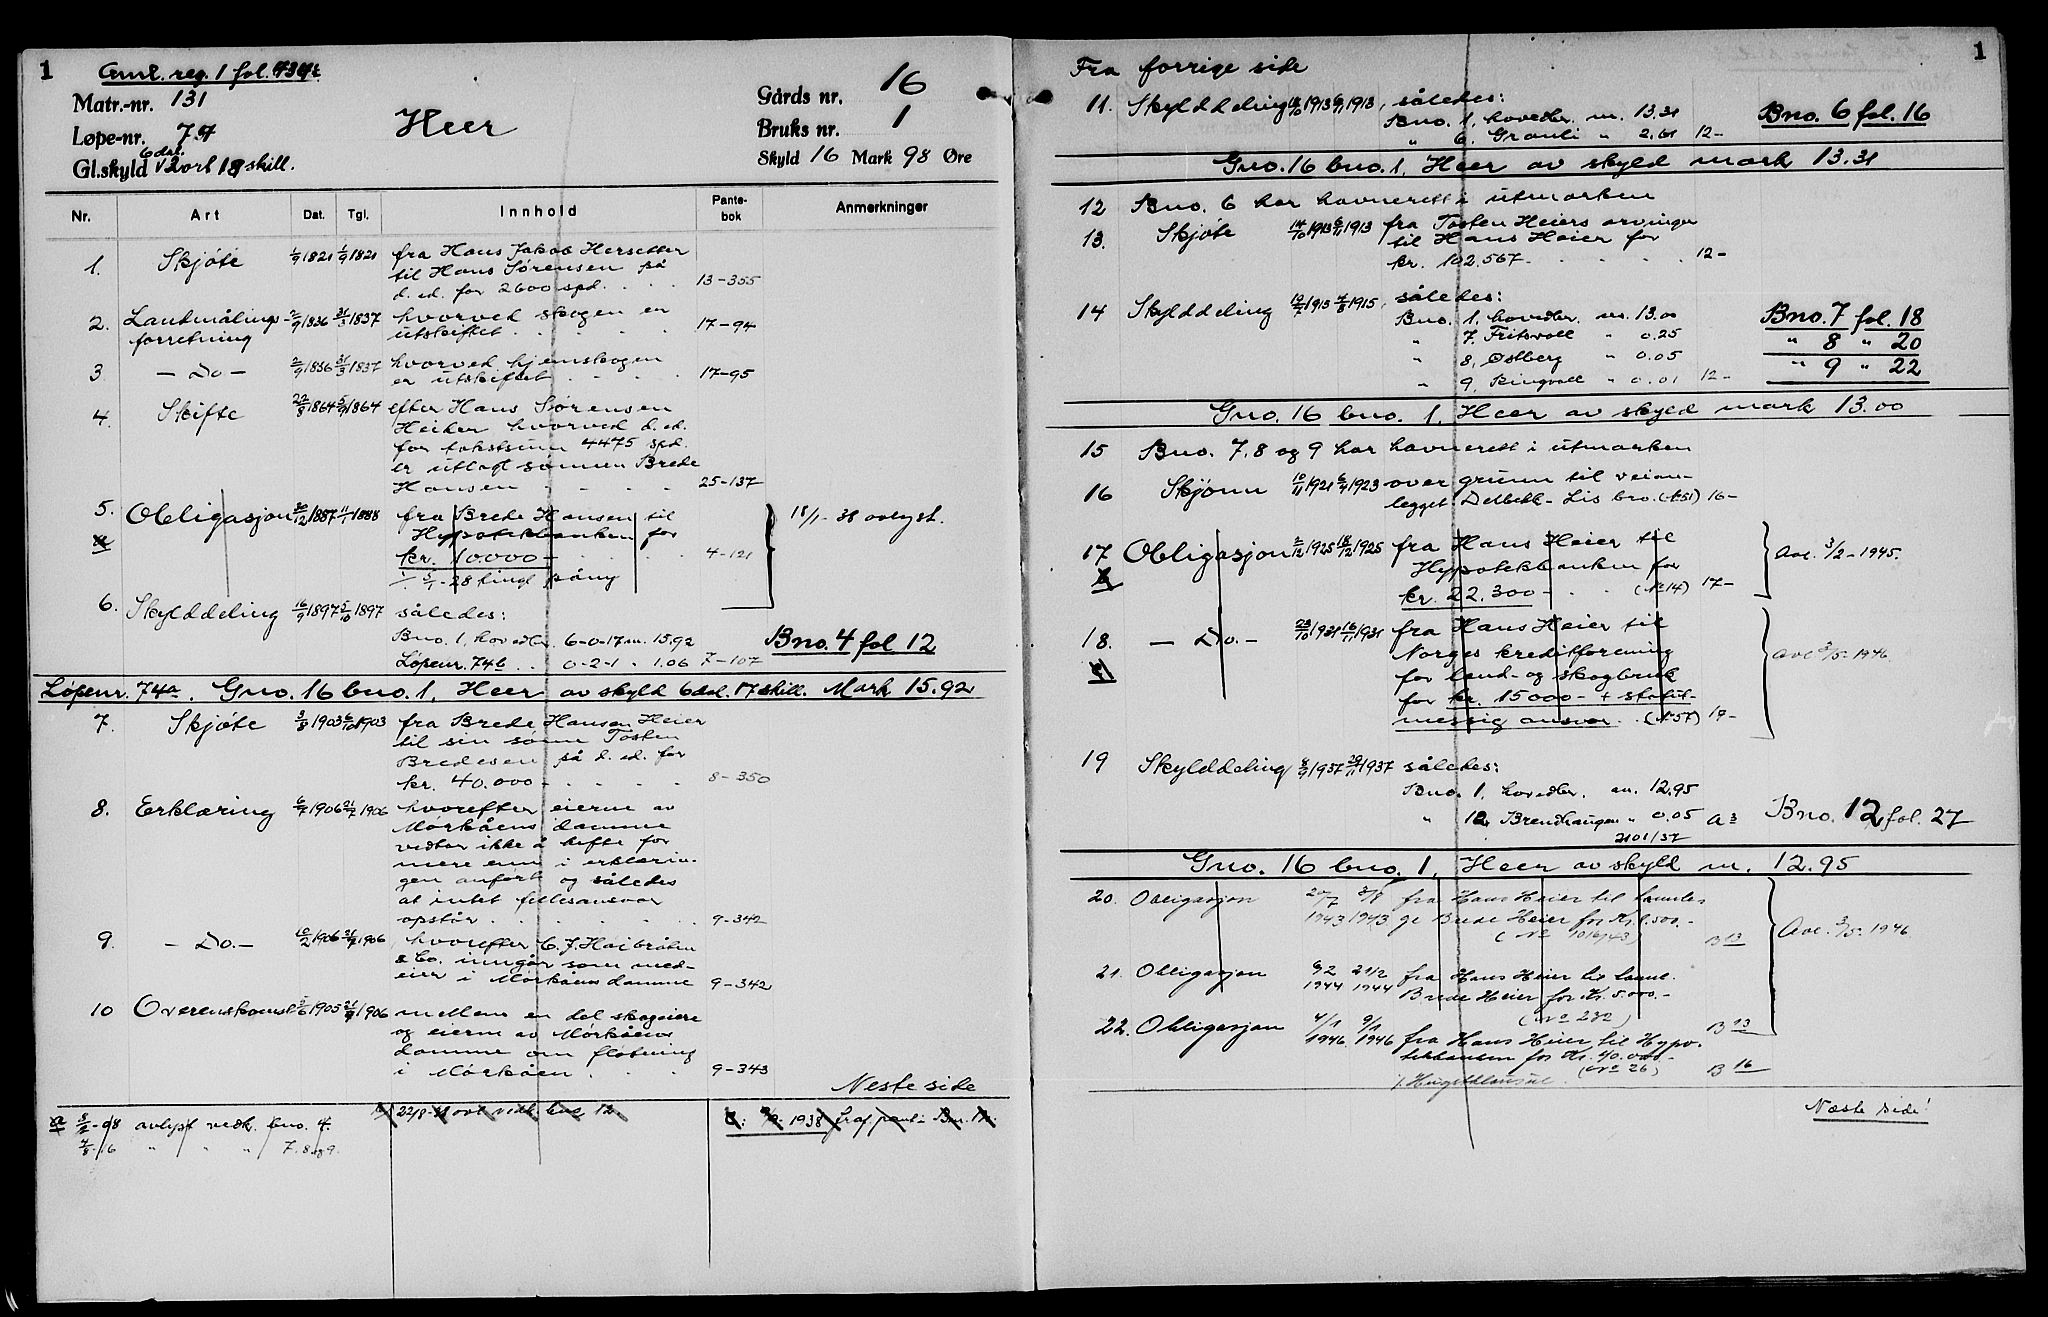 1
Gml. reg. 1 fol.
Matr.-nr. 131
Løpe-nr. 74
6 dal.
Gl.skyld 2 ort 18 skill.
Heer
Gårds nr. 16
Bruks nr. 1
Skyld 16 Mark 98 Øre
Nr. Art Dat. Tgl. Innhold Pante-bok Anmerkninger
1. Skjøte 1/9 1821 1/9 1821 fra Hans Jakob Hersetter
til Hans Sørensen på
d. ed. for 2600 spd. 13-355
2. Landmålings- 2/9 1836 31/3 1837 hvorved skogen er
forretning utskiftet 17-94
3 - Do - 2/9 1836 31/3 1837 hvorved hjemskogen
er utskiftet 17-95
4. Skifte 22/8 1864 5/9 1864 efter Hans Sørensen
Heier hvorved d. ed.
for takstsum 4475 spd.
er utlagt sønnen Brede
Hansen 25-137
5. Obligasjon 30/12 1887 11/1 1888 fra Brede Hansen til 18/1-38 avlyst.
a Hypotekbanken for
kr. 10000- 4-121
-28 tingl. påny
6. Skylddeling 16/9 1897 5/10 1897 således:
Bno. 1, hovedbr. 6-0-17 m. 15.92 Bno. 4 fol 12
Løpenr. 74b . . 0-2-1 " 1.06 7-107
Løpenr. 74a. Gno. 16 bno. 1, Heer av skyld 6 dal. 17 skill. Mark 15.92
7. Skjøte 3/8 1903 6/10 1903 fra Brede Hansen Heier
til sin sønn Tosten
Bredesen på d. ed. for
kr. 40.000- 8-350
8. Erklæring 6/7 1906 21/7 1906 hvorefter eierne av
Mørkåens damme
vedtar ikke å hefte for
mere enn i erklærin-
gen anført og således
at intet fellesansvar
opstår 9-342
9. - Do. - 10/2 1906 21/7 1906 hvorefter C. J. Hoibråten
& Co. inngår som med-
eier i Mørkåens damme 9-342
10 Overenskomst 1905 1906 mellem en del skogeiere
og eierne av Mørkåens
damme om fløtning
i Mørkåen 9-343
Neste side
a -08 avlyst vedk. bno. 4.
-16 " " " 7. 8 og 9.
22/8-31 avl vedk. bno 12.
1938 fraf. pant i Bnr. 12.
1
Fra forrige side
11. Skylddeling 18/10 1913 6/11 1913, således:
Bno. 1, hovedbr. m. 13.31 Bno. 6 fol. 16
" 6. Granli " 2.61 12-
Gno. 16 bno. 1, Heer av skyld mark 13.31
12 Bno. 6 har havnerett i utmarken
13. Skjøte 14/10 1913 6/11 1913 fra Tosten Heiers arvinger
til Hans Heier for
kr. 102.567- 12-
14 Skylddeling 1915 1915, således:
Bno. 1, hovedbr. m. 13.00 Bno. 7 fol. 18
" 7. Fritsvoll " 0.25 " 8 " 20
" 8, Østberg " 0.05 " 9 " 22
" 9, Ringvoll " 0.01 12-
Gno. 16 bno. 1, Heer av skyld mark 13.00
15 Bno. 7, 8 og 9 har havnerett i utmarken
16 Skjønn 10/11 1921 6/4 1923 over grunn til veian-
legget Delbekk-Lis bro. (№ 51) 16-
17 Obligasjon 2/12 1925 18/12 1925 fra Hans Heier til Avl. 3/2-1945.
Hypotekbanken for
kr. 22.300- (№ 14) 17-
18. - Do. - 23/10 1931 16/11 1931 fra Hans Heier til
Norges kreditforening Avl 3/5-1946
for land- og skogbruk
for kr. 15000- + statut-
messig ansvar. (№ 57) 17-
19 Skylddeling 8/9 1937 29/11 1937 således:
Bno. 1, hovedbr. m. 12.95
" 12 Brendhaugen " 0.05 A3 Bno. 12, fol. 27
2101/37
Gno. 16 bno. 1, Heer av skyld m. 12.95
20. Obligasjon 20/7 1943 1943 fra Hans Heier til
Brede Heier for Kr. 1.500.-
(№ 1016/43) B 13 Avl. 3/5-1946
21. Obligasjon 9/2 1944 21/2 1944 fra Hans Heier til
Brede Heier for Kr. 5.000.-
(№ 232) B 13
22. Obligasjon 4/1 1946 9/1 1946 fra Hans Heier til Hypo-
tekbanken for Kr. 40.000.-
(№ 26) B 16
Næste side!